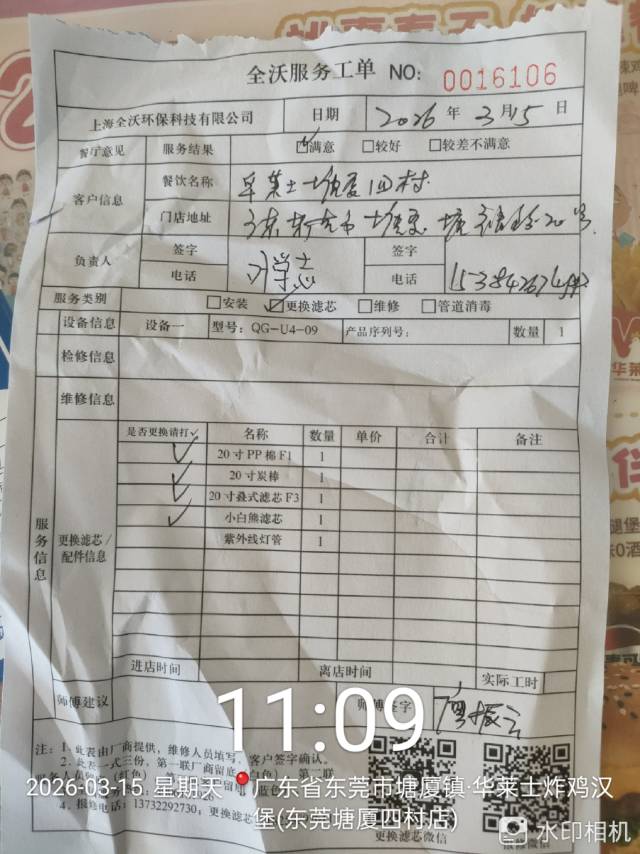 全沃服务工单 NO: 0016106
上海全沃环保科技有限公司 日期 2026 年 3 月 15 日
餐厅意见 服务结果 ☑满意 □较好 □较差不满意
客户信息 餐饮名称 华莱士塘厦四村
门店地址 广东 东莞市 塘厦 20号
负责人 签字 签字
电话 电话
服务类别 □安装 ☑更换滤芯 □维修 □管道消毒
设备信息 设备一 型号: QG-U4-09 产品序列号: 数量 1
检修信息
维修信息
服务信息
更换滤芯/配件信息
是否更换请打✓ 名称 数量 单价 合计 备注
✓ 20寸PP棉F1 1
✓ 20寸炭棒 1
✓ 20寸叠式滤芯F3 1
✓ 小白熊滤芯 1
紫外线灯管 1
进店时间 离店时间 实际工时
师傅建议 师傅签字
11:09
注: 1、此表由厂商提供, 维修人员填写, 客户签字确认。
2、此表一式三份, 第一联厂商留底
2026-03-15 星期天 广东省东莞市塘厦镇·华莱士炸鸡汉
堡(东莞塘厦四村店)
4、报修电话: 13732292730;
更换滤芯微信 报修微信
水印相机